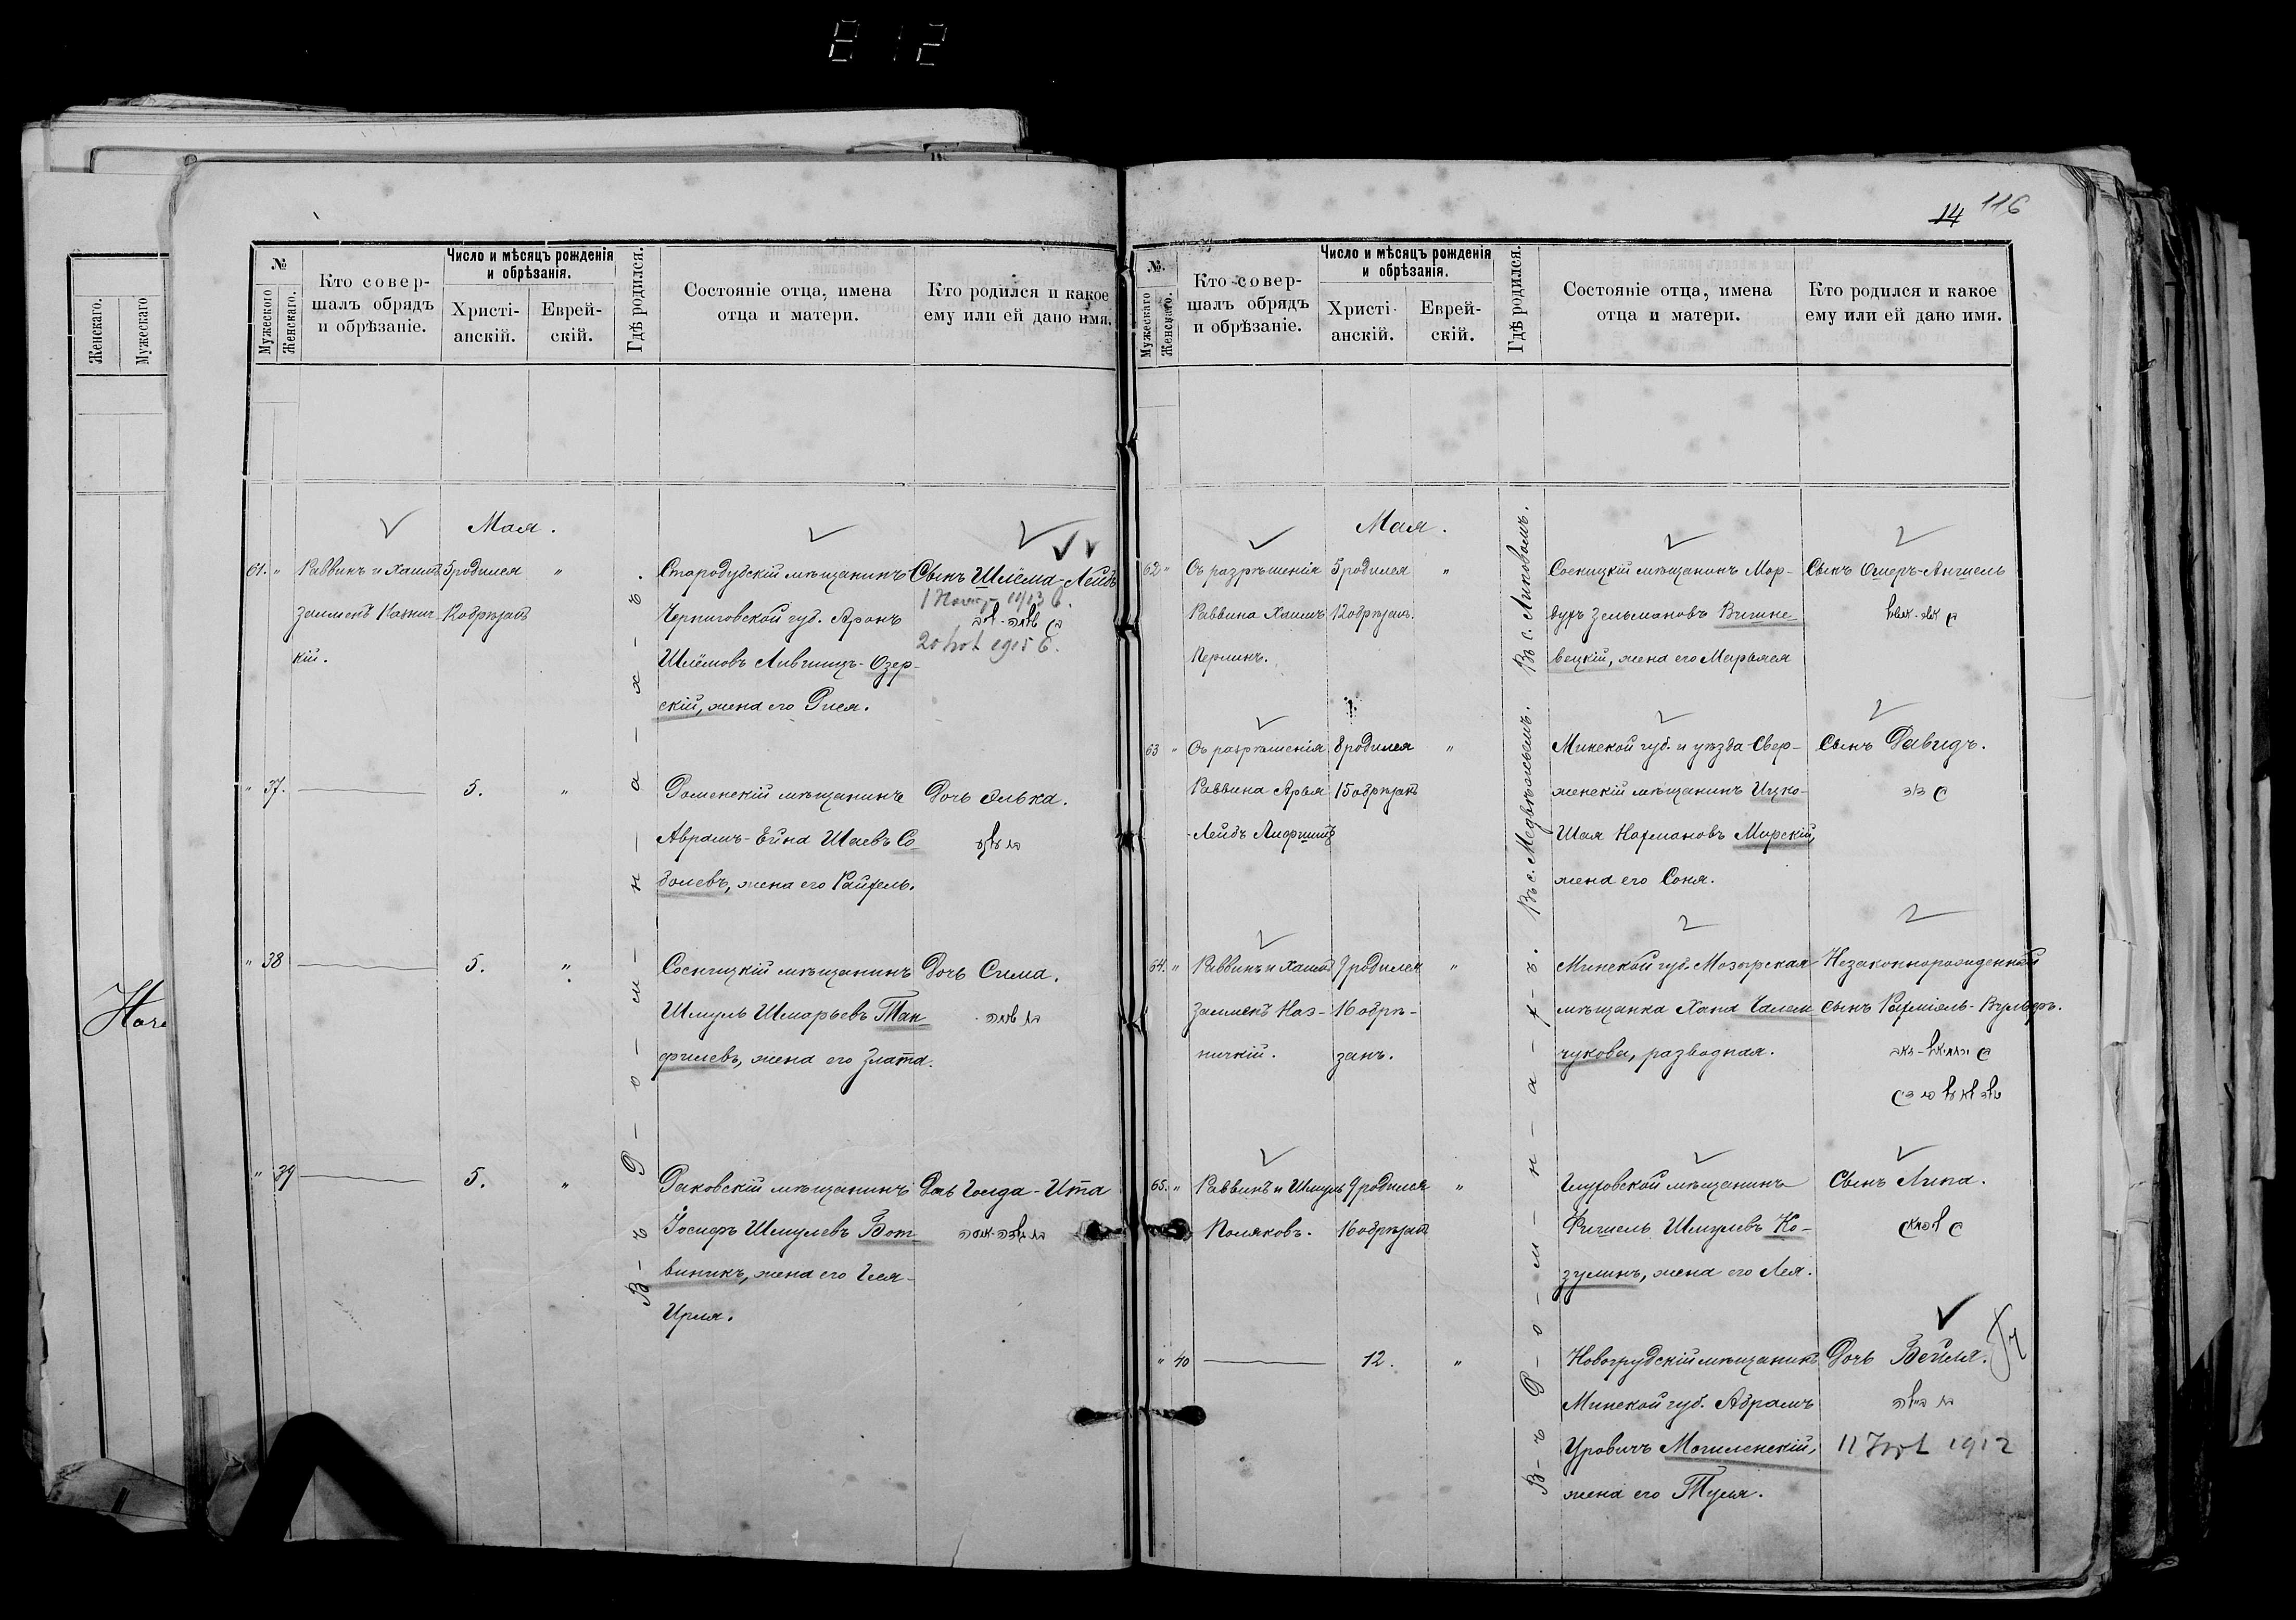 812
14 116
№
Мужескаго
Женскаго.
Кто совер-
шалъ обрядъ
и обрѣзаніе.
Число и мѣсяцъ рожденія
и обрѣзанія.
Христі-
анскій.
Еврей-
скій.
Гдѣ родился.
Состояніе отца, имена
отца и матери.
Кто родился и какое
ему или ей дано имя.
Женскаго.
Мужескаго
Мая.
61. "
Раввинъ и Хаимъ
Залменъ Казнич-
кій.
5 родился
12 обрѣзанъ
"
Стародубскій мѣщанинъ
Черниговской губ. Аронъ
Шлёмовъ Лившицъ-Озер-
скій, жена его Рися.
Сынъ Шлёма-Лейбъ
" 37.
5.
"
Роменскій мѣщанинъ
Абрамъ-Ейна Шаевъ Со-
болевъ, жена его Райхель.
Дочь Элька.
" 38
5.
"
Сосницкій мѣщанинъ
Шмуль Шмарьевъ Тан-
филевъ, жена его Злата.
Дочь Сима.
" 39
5.
"
Раковскій мѣщанинъ
Іосифъ Шмулевъ Вот-
виникъ, жена его Геся-
Ирля.
Дочь Голда-Ита
В-ъ Р-о-м-н-а-х-ъ.
№.
Мужескаго
Женскаго.
Кто совер-
шалъ обрядъ
и обрѣзаніе.
Число и мѣсяцъ рожденія
и обрѣзанія.
Христі-
анскій.
Еврей-
скій.
Гдѣ родился.
Состояніе отца, имена
отца и матери.
Кто родился и какое
ему или ей дано имя.
Мая.
62 "
Съ разрѣшенія
Раввина Хаимъ
Перлинъ.
5 родился
12 обрѣзанъ.
"
Въ с. Липовомъ.
Сосницкій мѣщанинъ Мор-
духъ Зельмановъ Вишне-
вецкій, жена его Марьяся
Сынъ Ошеръ-Аншель
63 "
Съ разрѣшенія
Раввина Арья
-Лейбъ Лифшицъ
8 родился
15 обрѣзанъ
"
Въ с. Медвѣжьемъ.
Минской губ. и уѣзда Свер-
женскій мѣщанинъ Ицко-
Шая Нохмановъ Мирскій,
жена его Соня.
Сынъ Давидъ.
64. "
Раввинъ и Хаимъ
Залменъ Каз-
ничкій.
9 родился
16 обрѣ-
занъ.
"
Минской губ. Мозырская
мѣщанка Хана Галем
чукова, разводная.
Незаконнорожденный
сынъ Рахміель-Вульфъ.
65. "
Раввинъ и Шмуль
Поляковъ.
9 родился
16 обрѣзанъ
"
Глуховской мѣщанинъ
Фишель Шмулевъ Ко-
зулинъ, жена его Лея.
Сынъ Липа.
" 40
12.
"
Новогрудскій мѣщанинъ
Минской губ. Абрамъ
Уровичъ Могиленскій,
жена его Туля.
Дочь Вейля.
1912
В-ъ Р-о-м-н-а-х-ъ.